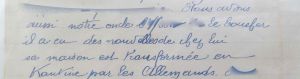 Nous avons
aussi notre oncle le
il a eu des nouvelles de chez lui
sa maison est transformée en
par les Allemands.